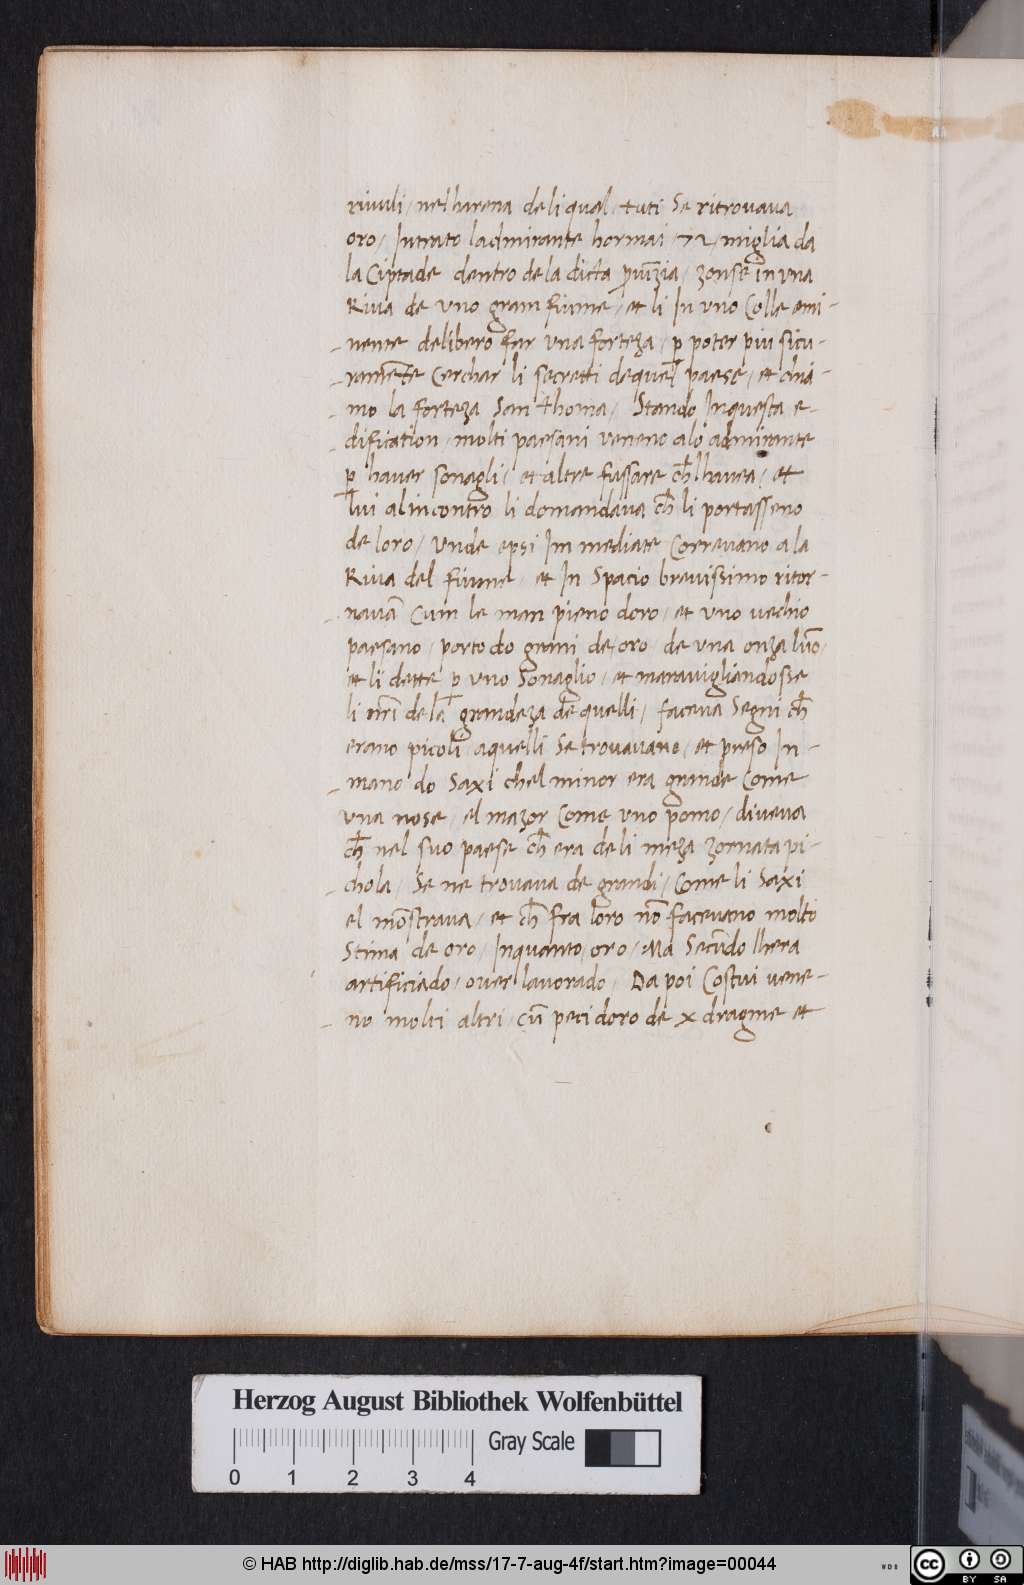 riuuli / nel harena de li qual / tuti Se ritrouaua
oro / Intrato ladmirante hormai / 72 / miglia da
la Ciptade dentro de la dicta ꝓuĩzia / zonse in vna
Riua de vno gram fiume / et li In vno Colle emi-
nente delibero far vna forteza / ꝑ poter piu sicu-
ramẽte Cerchar li secretti de quel paese / et chia-
mo la forteza San thoma / Stando Inquesta e-
dification / molti paesani veneno alo admirante
ꝑ hauer sonagli / et altre fassare ch̃ lhauea / et
lui al incontro li domandaua ch̃ li portasseno
de loro / Vnde epsi Im mediate Correuano a la
Riua del fiume / et In Spacio breuissimo ritor-
nauã Cum le man pieno doro / et vno vechio
paesano / porto do grani de oro / de vna onza luõ /
et li dette ꝑ vno Sonaglio / et marauigliandosse
li nr̃i de la grandeza de quelli / faceua Segni ch̃
erano picoli aquelli Se trouauano / et preso In-
mano do Saxi chel minor era grande Come
vna nose / el mazor Come vno pomo / diceua
ch̃ nel suo paese ch̃ era de li meza zornata pi-
chola / Se ne trouaua de grandi / Come li Saxi
el mõstraua / et ch̃ fra loro nõ faceuano molto
Stima de oro / Inquanto oro / Ma Secũdo lhera
artificiado / ouer lauorado / Da poi Costui vene-
no molti altri / cũ peci doro de x dragme et
Herzog August Bibliothek Wolfenbüttel
Gray Scale
0 1 2 3 4
© HAB http://diglib.hab.de/mss/17-7-aug-4f/start.htm?image=00044
cc BY SA